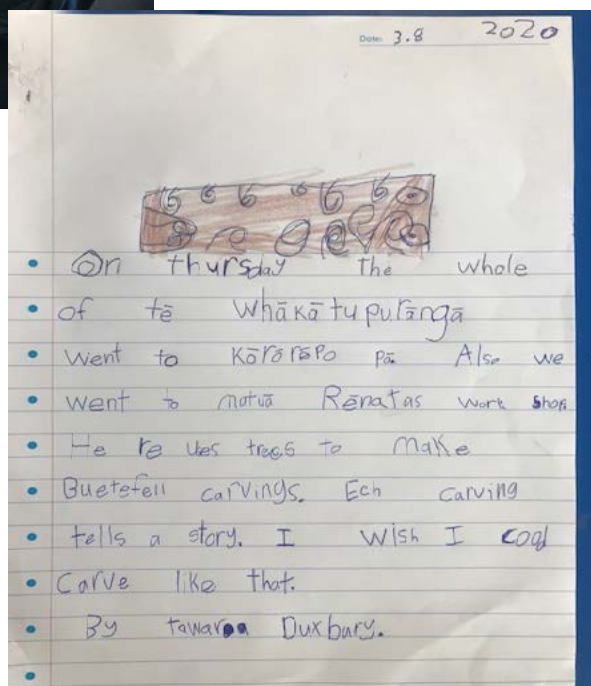 Date: 3.8 2020
On thursday The whole
of tē Whākātupurāngā
Went to Kōrōrēpo pā. Also we
went to matuā Rēnatas work shop
He re ues trees to make
Buetefell carvings. Ech carving
tells a story. I wish I cood
Carve like that.
By tawaroa Duxbury.